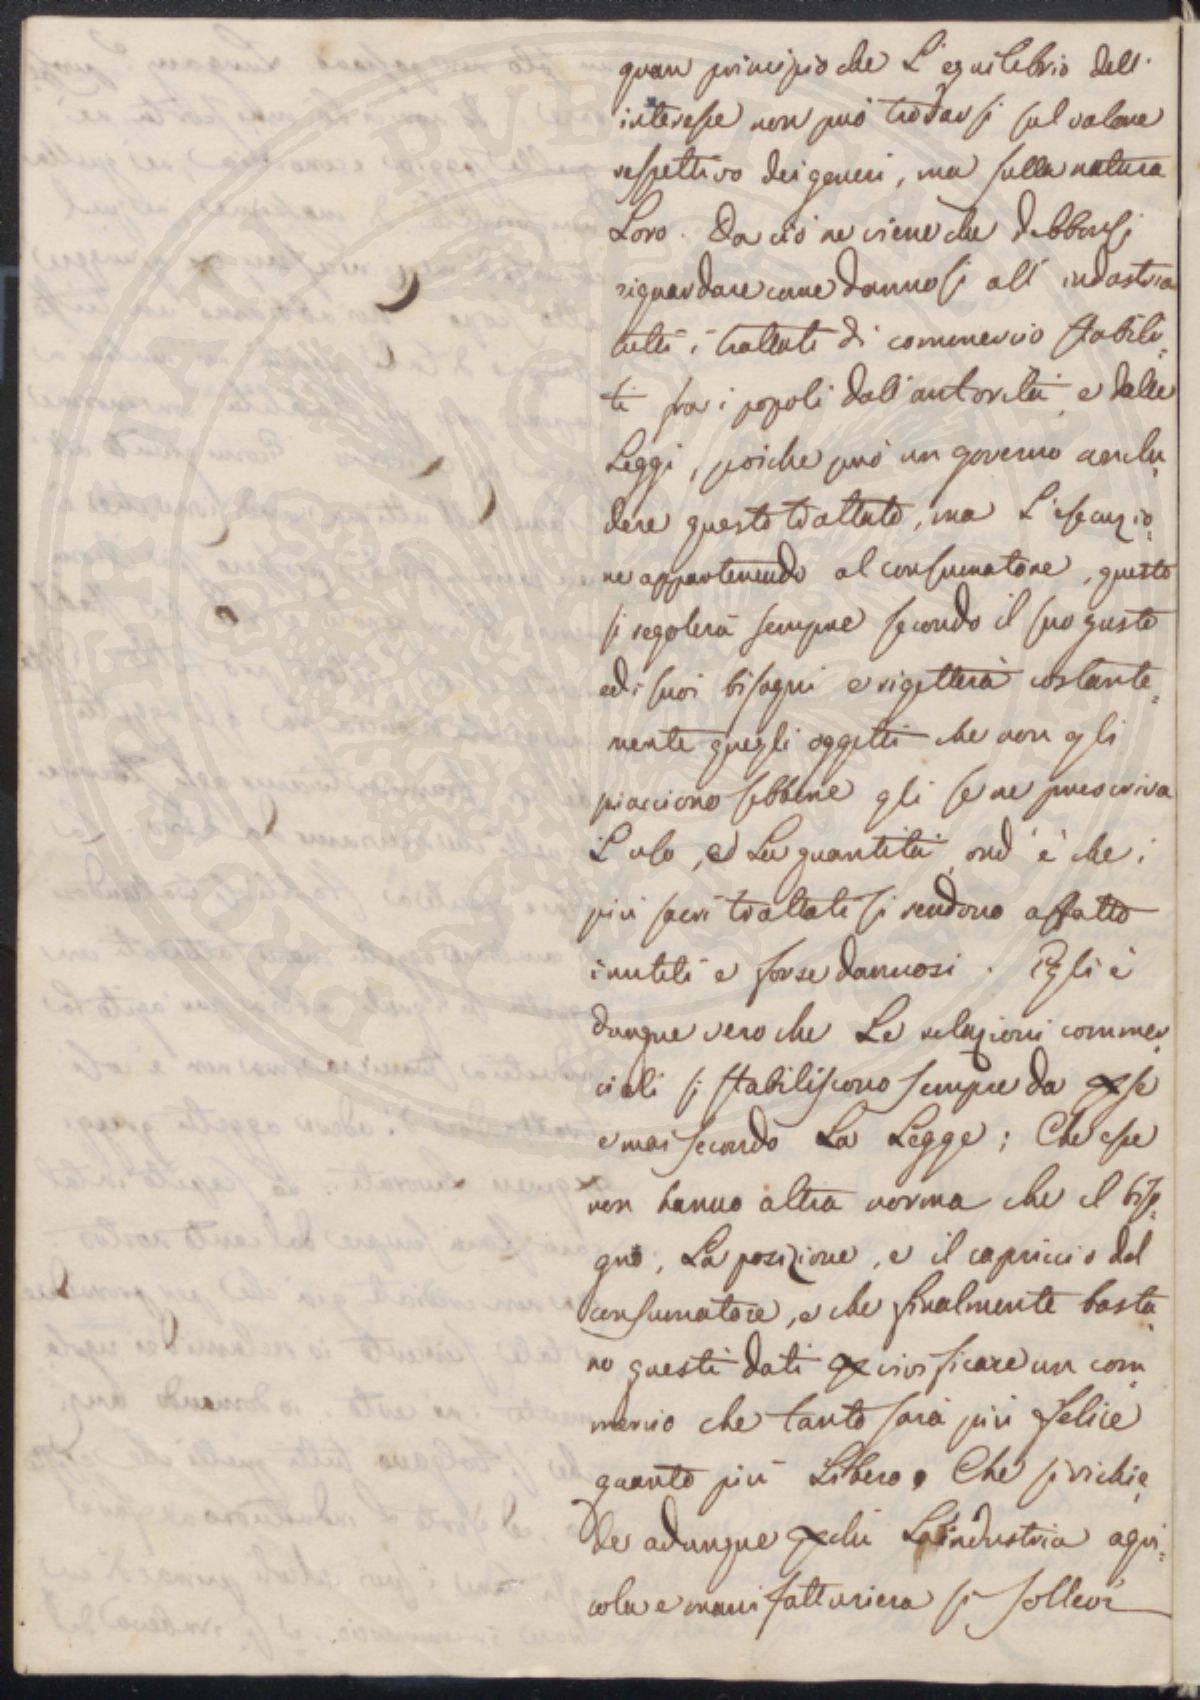 gran principio che L'equilibrio dell'
interesse non può trovarsi sul valore
respettivo dei generi, ma sulla natura
Loro. Da ciò ne viene che debbonsi
riguardare come dannosi all'industria
tutti i trattati di commercio stabili=
ti fra i popoli dall'autorità e dalle
Leggi, poiche può un governo conclu=
dere questo trattato, ma L'esecuzio=
ne appartenendo al consumatore, questo
si regolerà sempre secondo il suo gusto
ed i suoi bisogni e rigetterà costante=
mente quegli oggetti che non gli
piacciono sebbene gli se ne prescriva
L'uso, ed La quantità, ond'è che i
più sacri trattati si rendono affatto
inutili e forse dannosi. Egli è
dunque vero che Le relazioni commer=
ciali si stabiliscono sempre da se
e mai secondo La Legge; Che esse
non hanno altra norma che il biso=
gno, La posizione, e il capriccio del
consumatore, e che finalmente basta=
no questi dati p vivificare un com=
mercio che tanto sarà più felice
quanto più Libero. Che si richie=
de adunque pchè L'industria agri=
cola e manifatturiera si sollevi
PUBLICA